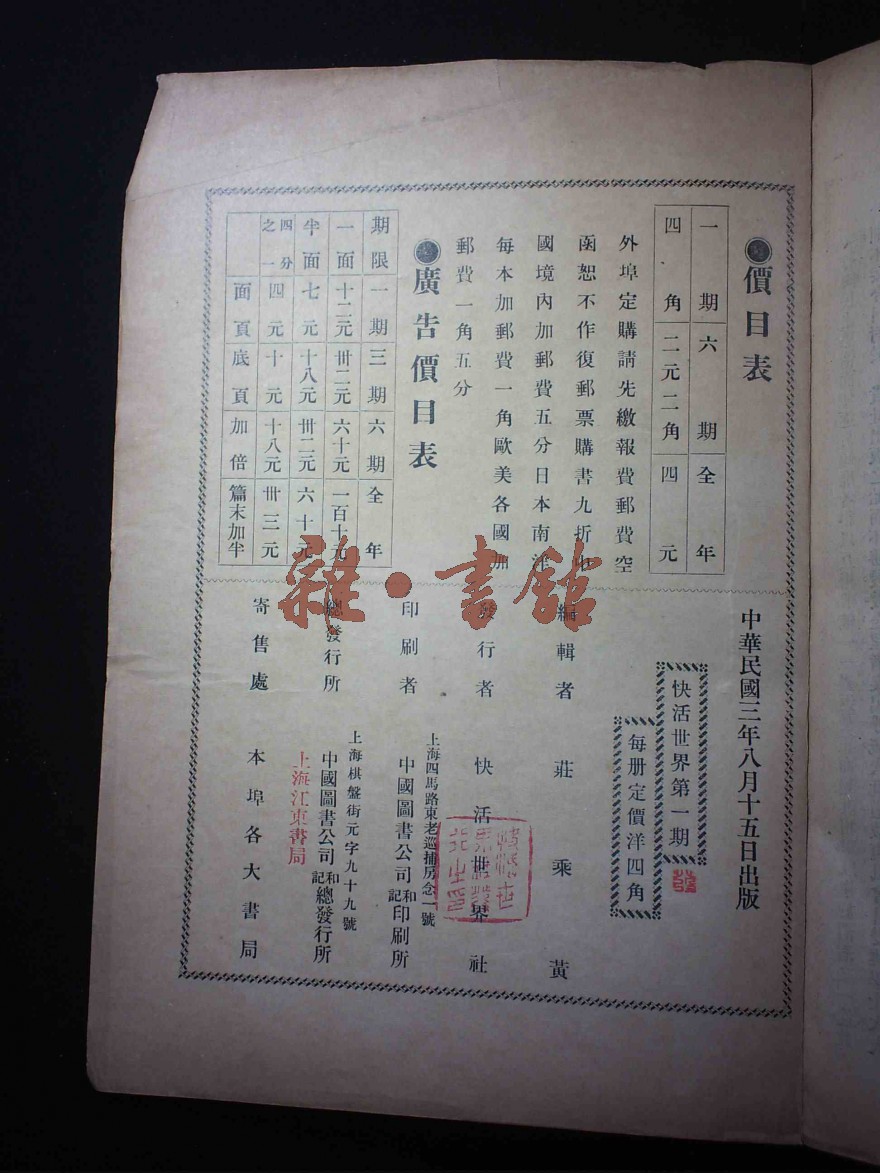 ●價目表
一期 六期 全年
四角 二元二角 四元
外埠定購請先繳報費郵費空
函恕不作復郵票購書九折中
國境內加郵費五分日本南洋
每本加郵費一角歐美各國加
郵費一角五分
●廣告價目表
期限 一期 三期 六期 全年
一面 十二元 卅二元 六十元 一百十元
半面 七元 十八元 卅二元 六十元
四分之一 四元 十元 十八元 卅三元
面頁 底頁 加倍 篇末加半
中華民國三年八月十五日出版
快活世界第一期
每册定價洋四角
編輯者 莊乘黃
發行者 快活世界社
上海四馬路東老巡捕房念一號
印刷者 中國圖書公司和記印刷所
上海棋盤街元字九十九號
總發行所 中國圖書公司和記總發行所
上海江東書局
寄售處 本埠各大書局
雜·書館